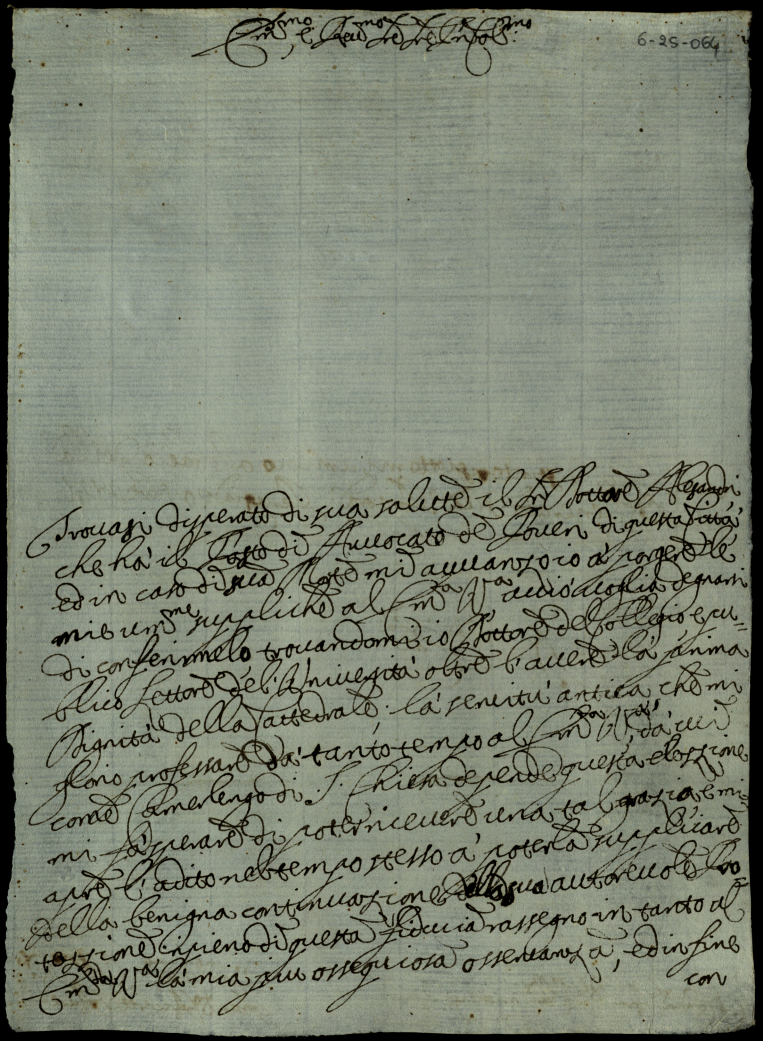 Em.mo, e Reu.mo Sig.re Sig.re Pron Col.mo
6-25-064
Trouasi disperato di sua salutte il Sig.r Dottore Alesandri
che hà il Posto di Auuocato de Poueri di questa Città
ed in caso di sua Morte mi auuanzo io à porgere le
mie um.me suppliche al Em.a V.a acciò uoglia degnarsi
di conferirmelo trouandomi io Dottore del Collegio e pu=
blico Lettore del Uniuersità oltre l'auere la prima
Dignità della Cattedrale; la seruitù antica che mi
glorio professare da tanto tempo al Em.a V.a da cui
come Camerlengo di S. Chiesa depende questa elezzione
mi fà sperare di poter riceuere una tal grazia, e mi
apre l'adito nel tempo stesso à poterla supplicare
della benigna continuazione della sua autoreuole Pro
tezzione; in pieno di questa fiducia rassegno in tanto al
Em.a V.a la mia piu ossequiosa osseruanza, ed in fine
con